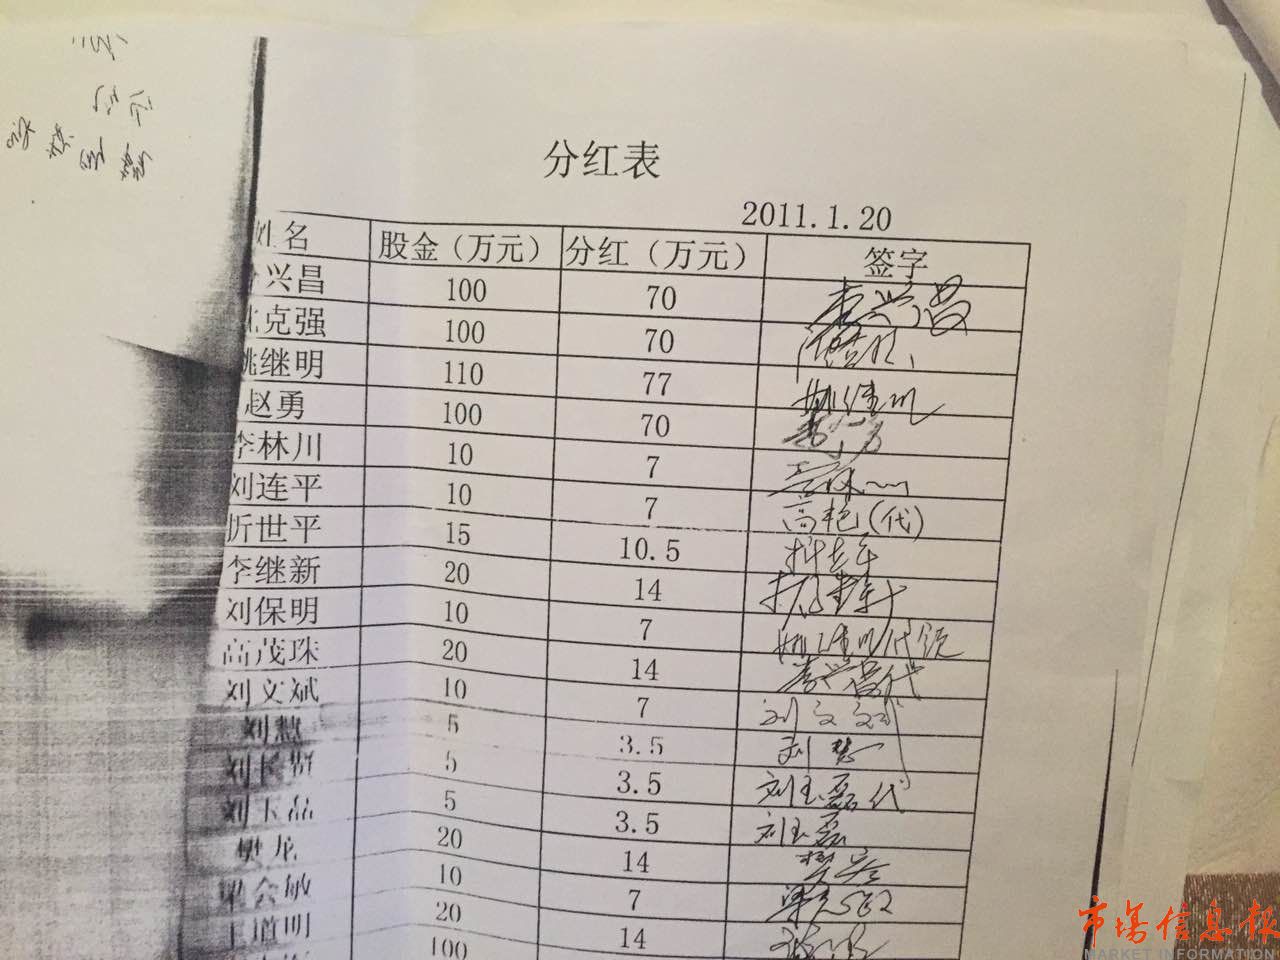 分红表
2011.1.20
姓名 股金（万元） 分红（万元） 签字
兴昌 100 70 袁兴昌
克强 100 70
姚继明 110 77 姚继明
赵勇 100 70
李林川 10 7
刘连平 10 7 高艳（代）
忻世平 15 10.5
李继新 20 14
刘保明 10 7 姚继明代领
高茂珠 20 14 袁兴昌代
刘文斌 10 7 刘文斌
刘慧 5 3.5 刘慧
刘长贤 5 3.5 刘玉磊代
刘玉磊 5 3.5 刘玉磊
樊龙 20 14 樊龙
梁会敏 10 7
王道明 20 14
100
市场信息报
MARKET INFORMATION